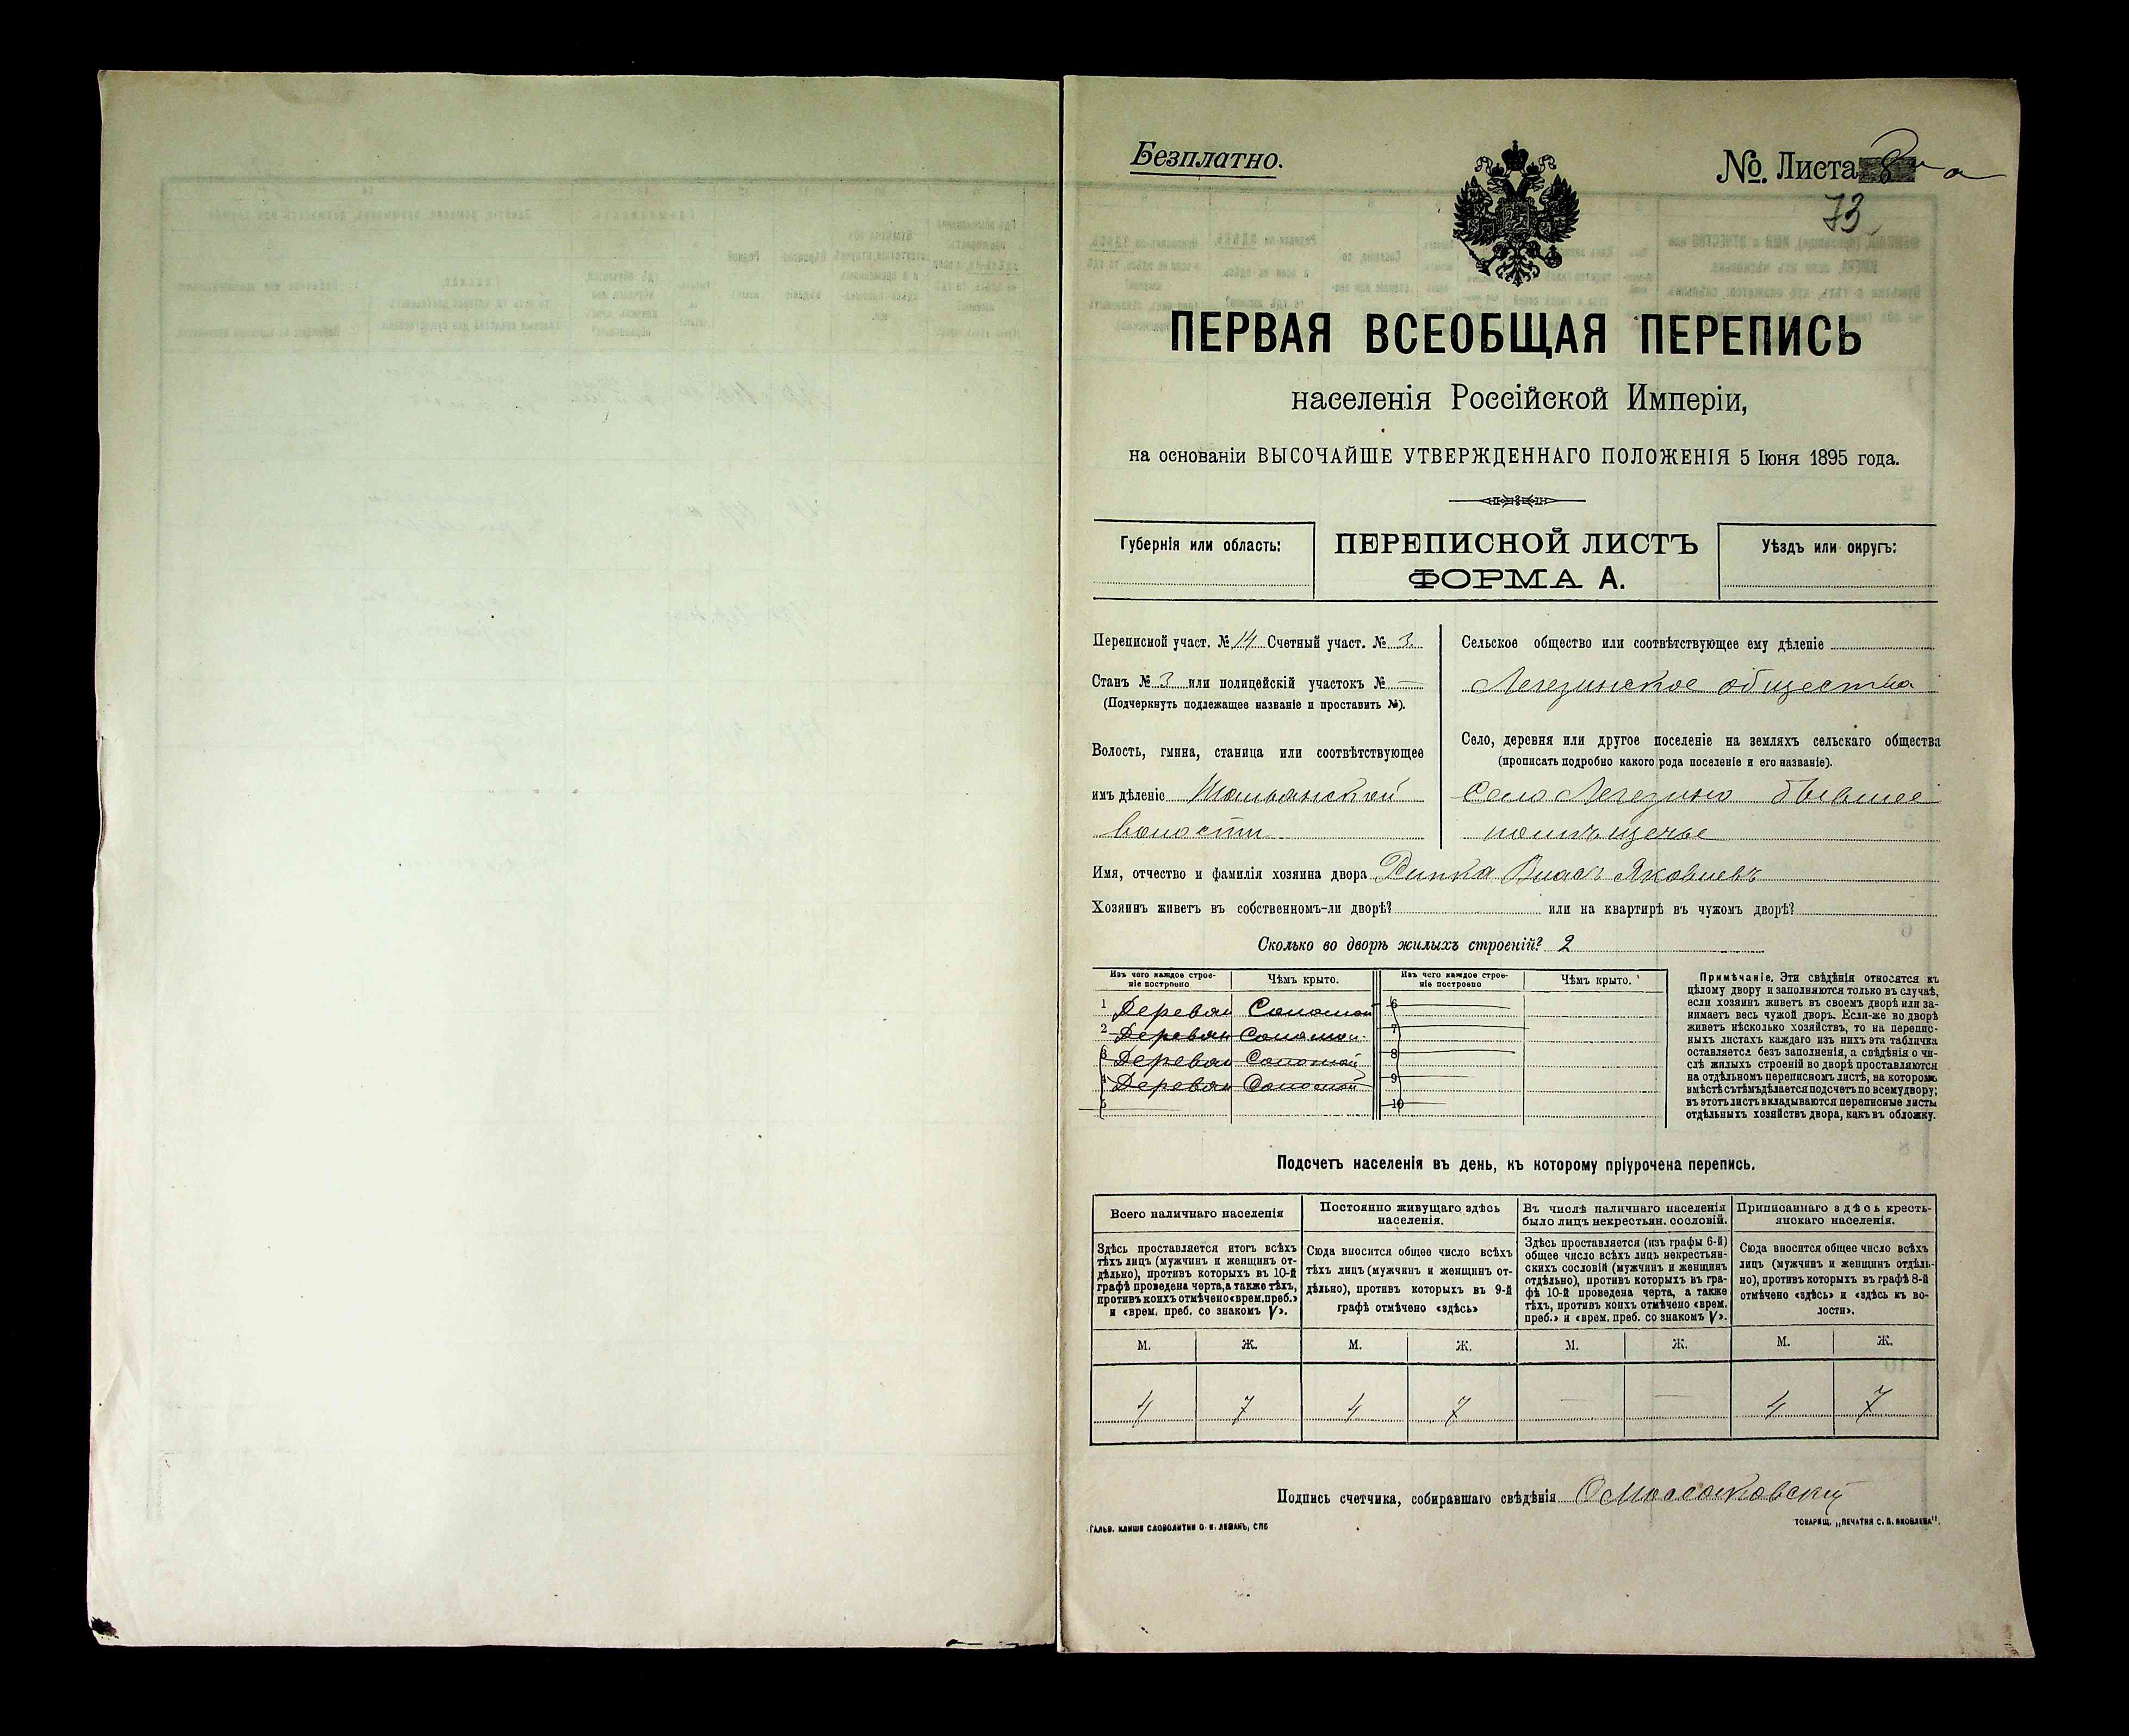 Безплатно.
№. Листа 8
73
ПЕРВАЯ ВСЕОБЩАЯ ПЕРЕПИСЬ
населенія Россійской Имперіи,
на основаніи ВЫСОЧАЙШЕ УТВЕРЖДЕННАГО ПОЛОЖЕНІЯ 5 Іюня 1895 года.
Губернія или область:
ПЕРЕПИСНОЙ ЛИСТЪ
ФОРМА А.
Уѣздъ или округъ:
Переписной участ. № 14 Счетный участ. № 3.
Станъ № 3 или полицейскій участокъ № —
(Подчеркнуть подлежащее названіе и проставить №).
Волость, гмина, станица или соотвѣтствующее
имъ дѣленіе
волости
Сельское общество или соотвѣтствующее ему дѣленіе
Легезинское общества
Село, деревня или другое поселеніе на земляхъ сельскаго общества
(прописать подробно какого рода поселеніе и его названіе).
Село Легезино бывшее
помѣщечье
Имя, отчество и фамилія хозяина двора Власъ Яковлевъ
Хозяинъ живетъ въ собственномъ-ли дворѣ? или на квартирѣ въ чужомъ дворѣ?
Сколько во дворѣ жилыхъ строеній? 2
Изъ чего каждое строе-
ніе построено
Чѣмъ крыто.
Изъ чего каждое строе-
ніе построено
Чѣмъ крыто.
1 Деревян Соломой 6
2 Деревян Соломой 7
3 Деревян Соломой 8
4 Деревян Соломой 9
5 10
Примѣчаніе. Эти свѣдѣнія относятся къ
цѣлому двору и заполняются только въ случаѣ,
если хозяинъ живетъ въ своемъ дворѣ или за-
нимаетъ весь чужой дворъ. Если-же во дворѣ
живетъ нѣсколько хозяйствъ, то на перепис-
ныхъ листахъ каждаго изъ нихъ эта табличка
оставляется безъ заполненія, а свѣдѣнія о чи-
слѣ жилыхъ строеній во дворѣ проставляются
на отдѣльномъ переписномъ листѣ, на которомъ
вмѣстѣ съ тѣмъ дѣлается подсчетъ по всему двору;
въ этотъ листъ вкладываются переписные листы
отдѣльныхъ хозяйствъ двора, какъ въ обложку.
Подсчетъ населенія въ день, къ которому пріурочена перепись.
Всего наличнаго населенія
Постоянно живущаго здѣсь
населенія.
Въ числѣ наличнаго населенія
было лицъ некрестьян. сословій.
Приписаннаго здѣсь кресть-
янскаго населенія.
Здѣсь проставляется итогъ всѣхъ
тѣхъ лицъ (мужчинъ и женщинъ от-
дѣльно), противъ которыхъ въ 10-й
графѣ проведена черта, а также тѣхъ,
противъ коихъ отмѣчено «врем. преб.»
и «врем. преб. со знакомъ V».
Сюда вносится общее число всѣхъ
тѣхъ лицъ (мужчинъ и женщинъ от-
дѣльно), противъ которыхъ въ 9-й
графѣ отмѣчено «здѣсь»
Здѣсь проставляется (изъ графы 6-й)
общее число всѣхъ лицъ некрестьян-
скихъ сословій (мужчинъ и женщинъ
отдѣльно), противъ которыхъ въ гра-
фѣ 10-й проведена черта, а также
тѣхъ, противъ коихъ отмѣчено «врем.
преб.» и «врем. преб. со знакомъ V».
Сюда вносится общее число всѣхъ
лицъ (мужчинъ и женщинъ отдѣль-
но), противъ которыхъ въ графѣ 8-й
отмѣчено «здѣсь» и «здѣсь къ во-
лости».
М. Ж. М. Ж. М. Ж. М. Ж.
4 7 4 7 — — 4 7
Подпись счетчика, собиравшаго свѣдѣнія
ГАЛЬВ. КЛИШЕ СЛОВОЛИТНИ О. И. ЛЕМАНЪ, СПБ
ТОВАРИЩ. „ПЕЧАТНЯ С. П. ЯКОВЛЕВА".